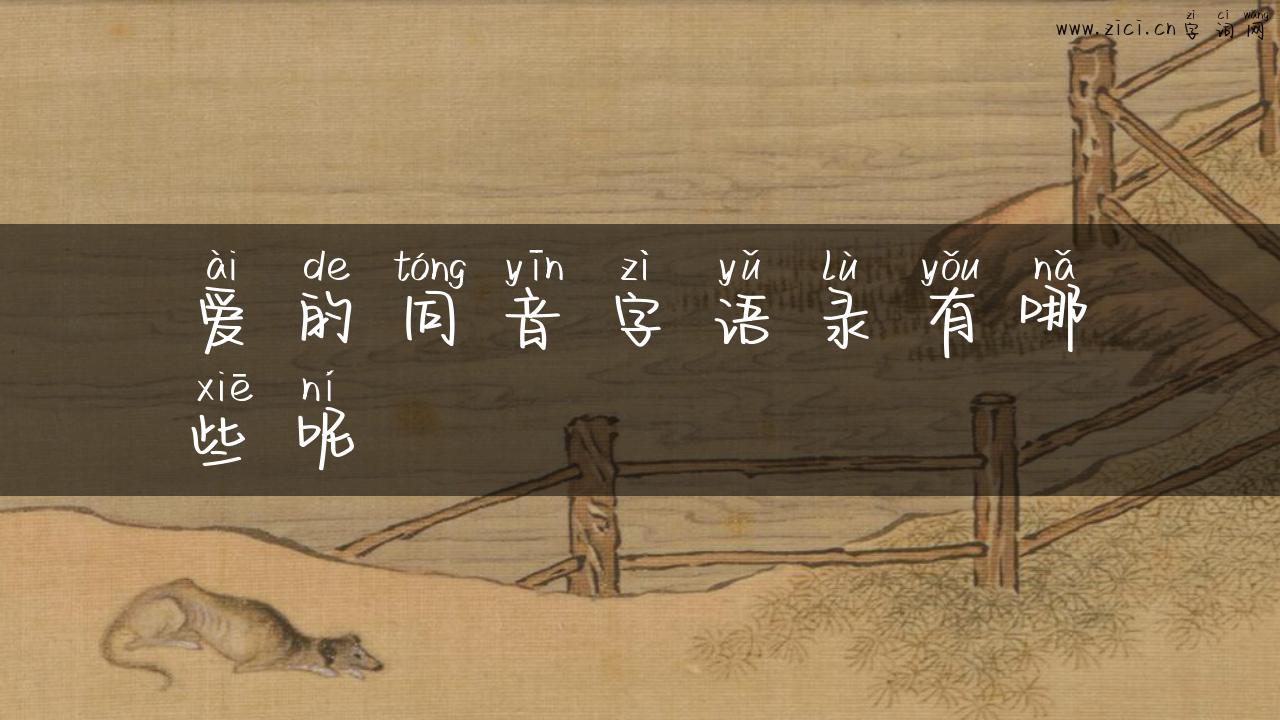 zì cí wǎng
www.zici.cn 字词网
ài de tóng yīn zì yǔ lù yǒu nǎ
爱的同音字语录有哪
xiē ní
些呢